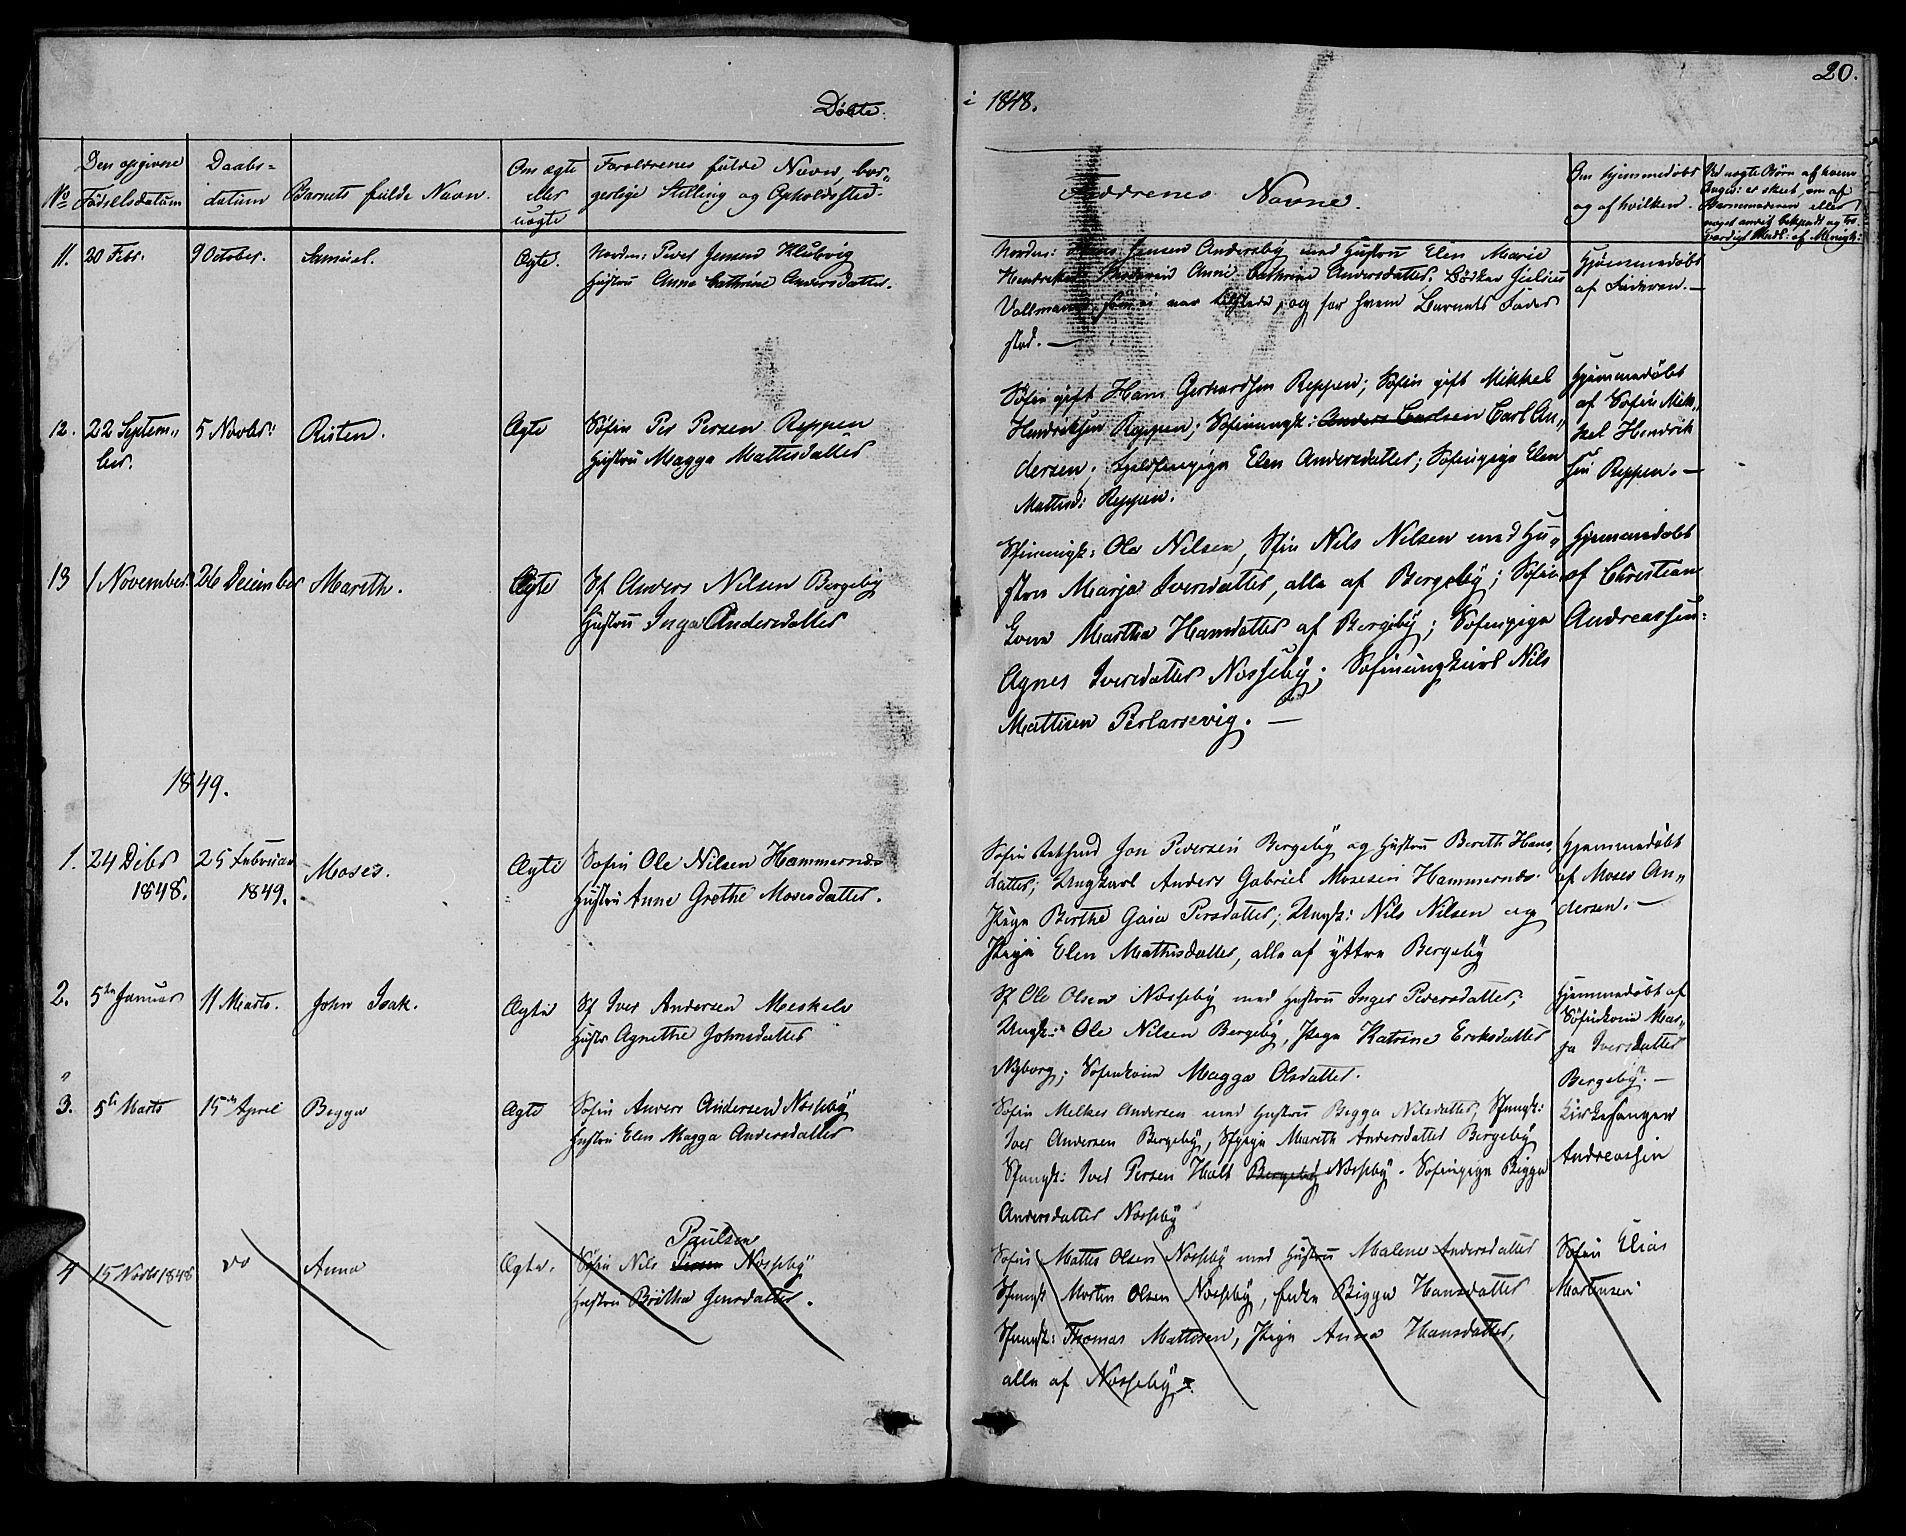 20.
Døbte i 1848.
No
Den opgivne Fødselsdatum
Daabsdatum
Barnets fulde Navn.
Om ægte eller uægte
Forældrenes fulde Navn, bor-
gerlige Stilling og Opholdssted.
Faddrenes Navne.
Om hjemmedøbt
og af hvilken.
11. 20 Febr. 9 October. Samuel. Ægte.
Nordm: Peder Jensen Klubvig
Hustru Anne Cathrine Andersdatter.
Nordm: Hans Jensen Andersby med Hustru Elen Marie
Anne Cathrine Andersdatter.
som ei var tilstede, og for hvem Barnets Fader
stod. —
Hjemmedøbt
af Faderen. —
12. 22 Septem-
ber. 5 Novbr: Risten. Ægte
Søfin Per Persen Reppen
Hustru Magga Mattisdatter
Søfin gift Hans Gerhardsen Reppen; Søfin gift Mikkel
Hendriksen Reppen; Søfinungk: Anders Carlsen Carl An-
dersen, Fjeldfinpige Elen Andersdatter; Søfinpige Elen
Mattisd: Reppen.
Hjemmedøbt
af Søfin Mik-
kel Hendrik
sen Reppen. —
13 1 November. 26 December Mareth. Ægte
Sf Anders Nilsen Bergeby
Hustru Inga Andersdatter
Sfinungk: Ole Nilsen, Sfin Nils Nilsen med Hu-
stru Marja Iversdatter, alle af Bergeby; Søfin
Kone Martha Hansdatter af Bergeby; Søfinpige
Agnes Iversdatter Næsseby; Søfinungkarl Nils
Mattisen Perlarsevig. —
Hjemmedøbt
af Christian
Andreassen.
1849.
1. 24 Debr
1848. 25 Februar
1849. Moses. Ægte
Søfin Ole Nilsen Hammernæs
Hustru Anne Grethe Mosesdatter.
Søfin Jon Pedersen Bergeby og Hustru Bereth Hans
datter; Ungkarl Anders Gabriel Mosesen Hammernæs.
Pige Berthe Gaia Persdatter; Ungk: Nils Nilsen og
Pige Elen Mathisdatter, alle af yttre Bergeby
Hjemmedøbt
af Moses An-
dersen. —
2. 5te Januar 11 Marts. John Isak. Ægte
Sf Iver Andersen Meskelv
Hustr Agnethe Johnsdatter
Sf Ole Olsen Næsseby med Hustru Inger Pedersdatter;
Ungk: Ole Nilsen Bergeby, Pige Katrine Eriksdatter
Nyborg; Søfinkone Magga Olsdatter.
Hjemmedøbt af
Søfinkone Mar-
ja Iversdatter
Bergeby. —
3. 5te Marts 15de April Begga Ægte
Søfin Anders Andersen Næsseby
Hustru Elen Magga Andersdatter
Søfin Melkes Andersen med Hustru Begga Nilsdatter, Sfungk:
Iver Andersen Bergeby, Sfpige Mareth Andersdatter Bergeby
Sfungk: Iver Persen Halt Bergeby Næsseby. Søfinpige Bigga
Andersdatter Næsseby
Kirkesanger
Andreassen
4 15 Novbr 1848 do Anna Ægte.
Paulsen
Søfin Nils Persen Næsseby
Hustru Britha Jensdatter.
Søfin Mattis Olsen Næsseby med Hustru Malene Andersdatter
Sfungk Morten Olsen Næsseby, Enke Bigga Hansdatter
Sfungk: Thomas Mattisen, Pige Anna Hansdatter,
alle af Næsseby
Søfin Elias
Mortensen